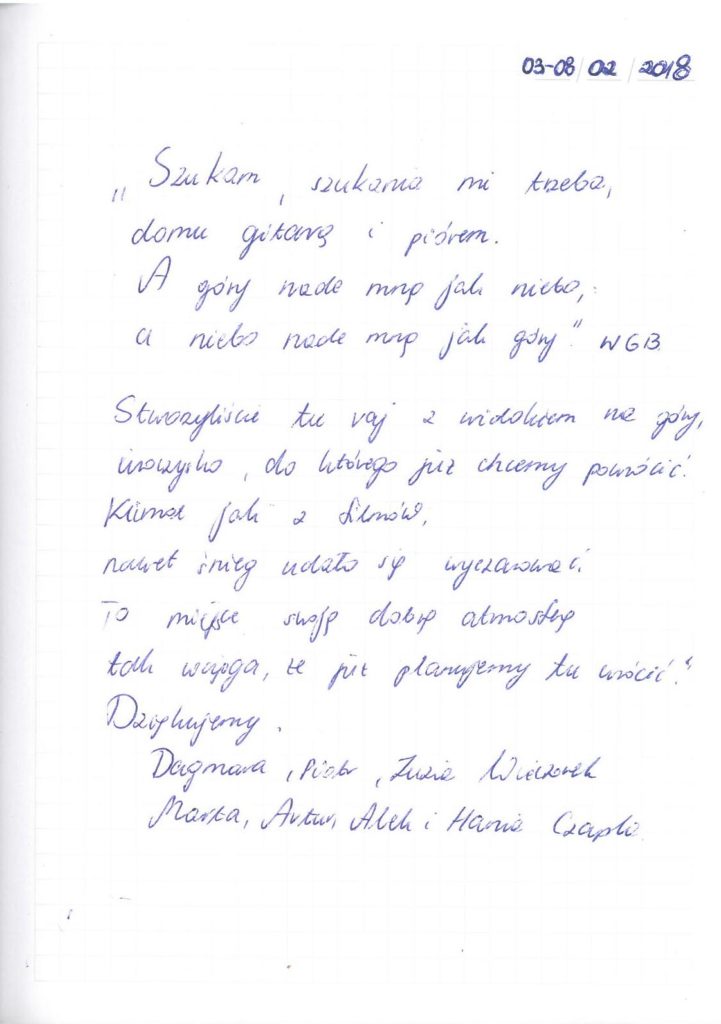 03-08/02/2018
„Szukam, szukania mi trzeba,
domu gitarą i piórem.
A góry nade mną jak niebo,
a niebo nade mną jak góry" WGB
Stworzyliście tu raj z widokiem na góry,
uroczysko, do którego już chcemy powrócić.
Klimat jak z filmów,
nawet śnieg udało się wyczarować.
To miejsce swoją dobrą atmosferą
tak wciąga, że już planujemy tu wrócić."
Dziękujemy.
Dagmara, Piotr, Zuzia Wieczorek
Marta, Artur, Alek i Hania Czapla